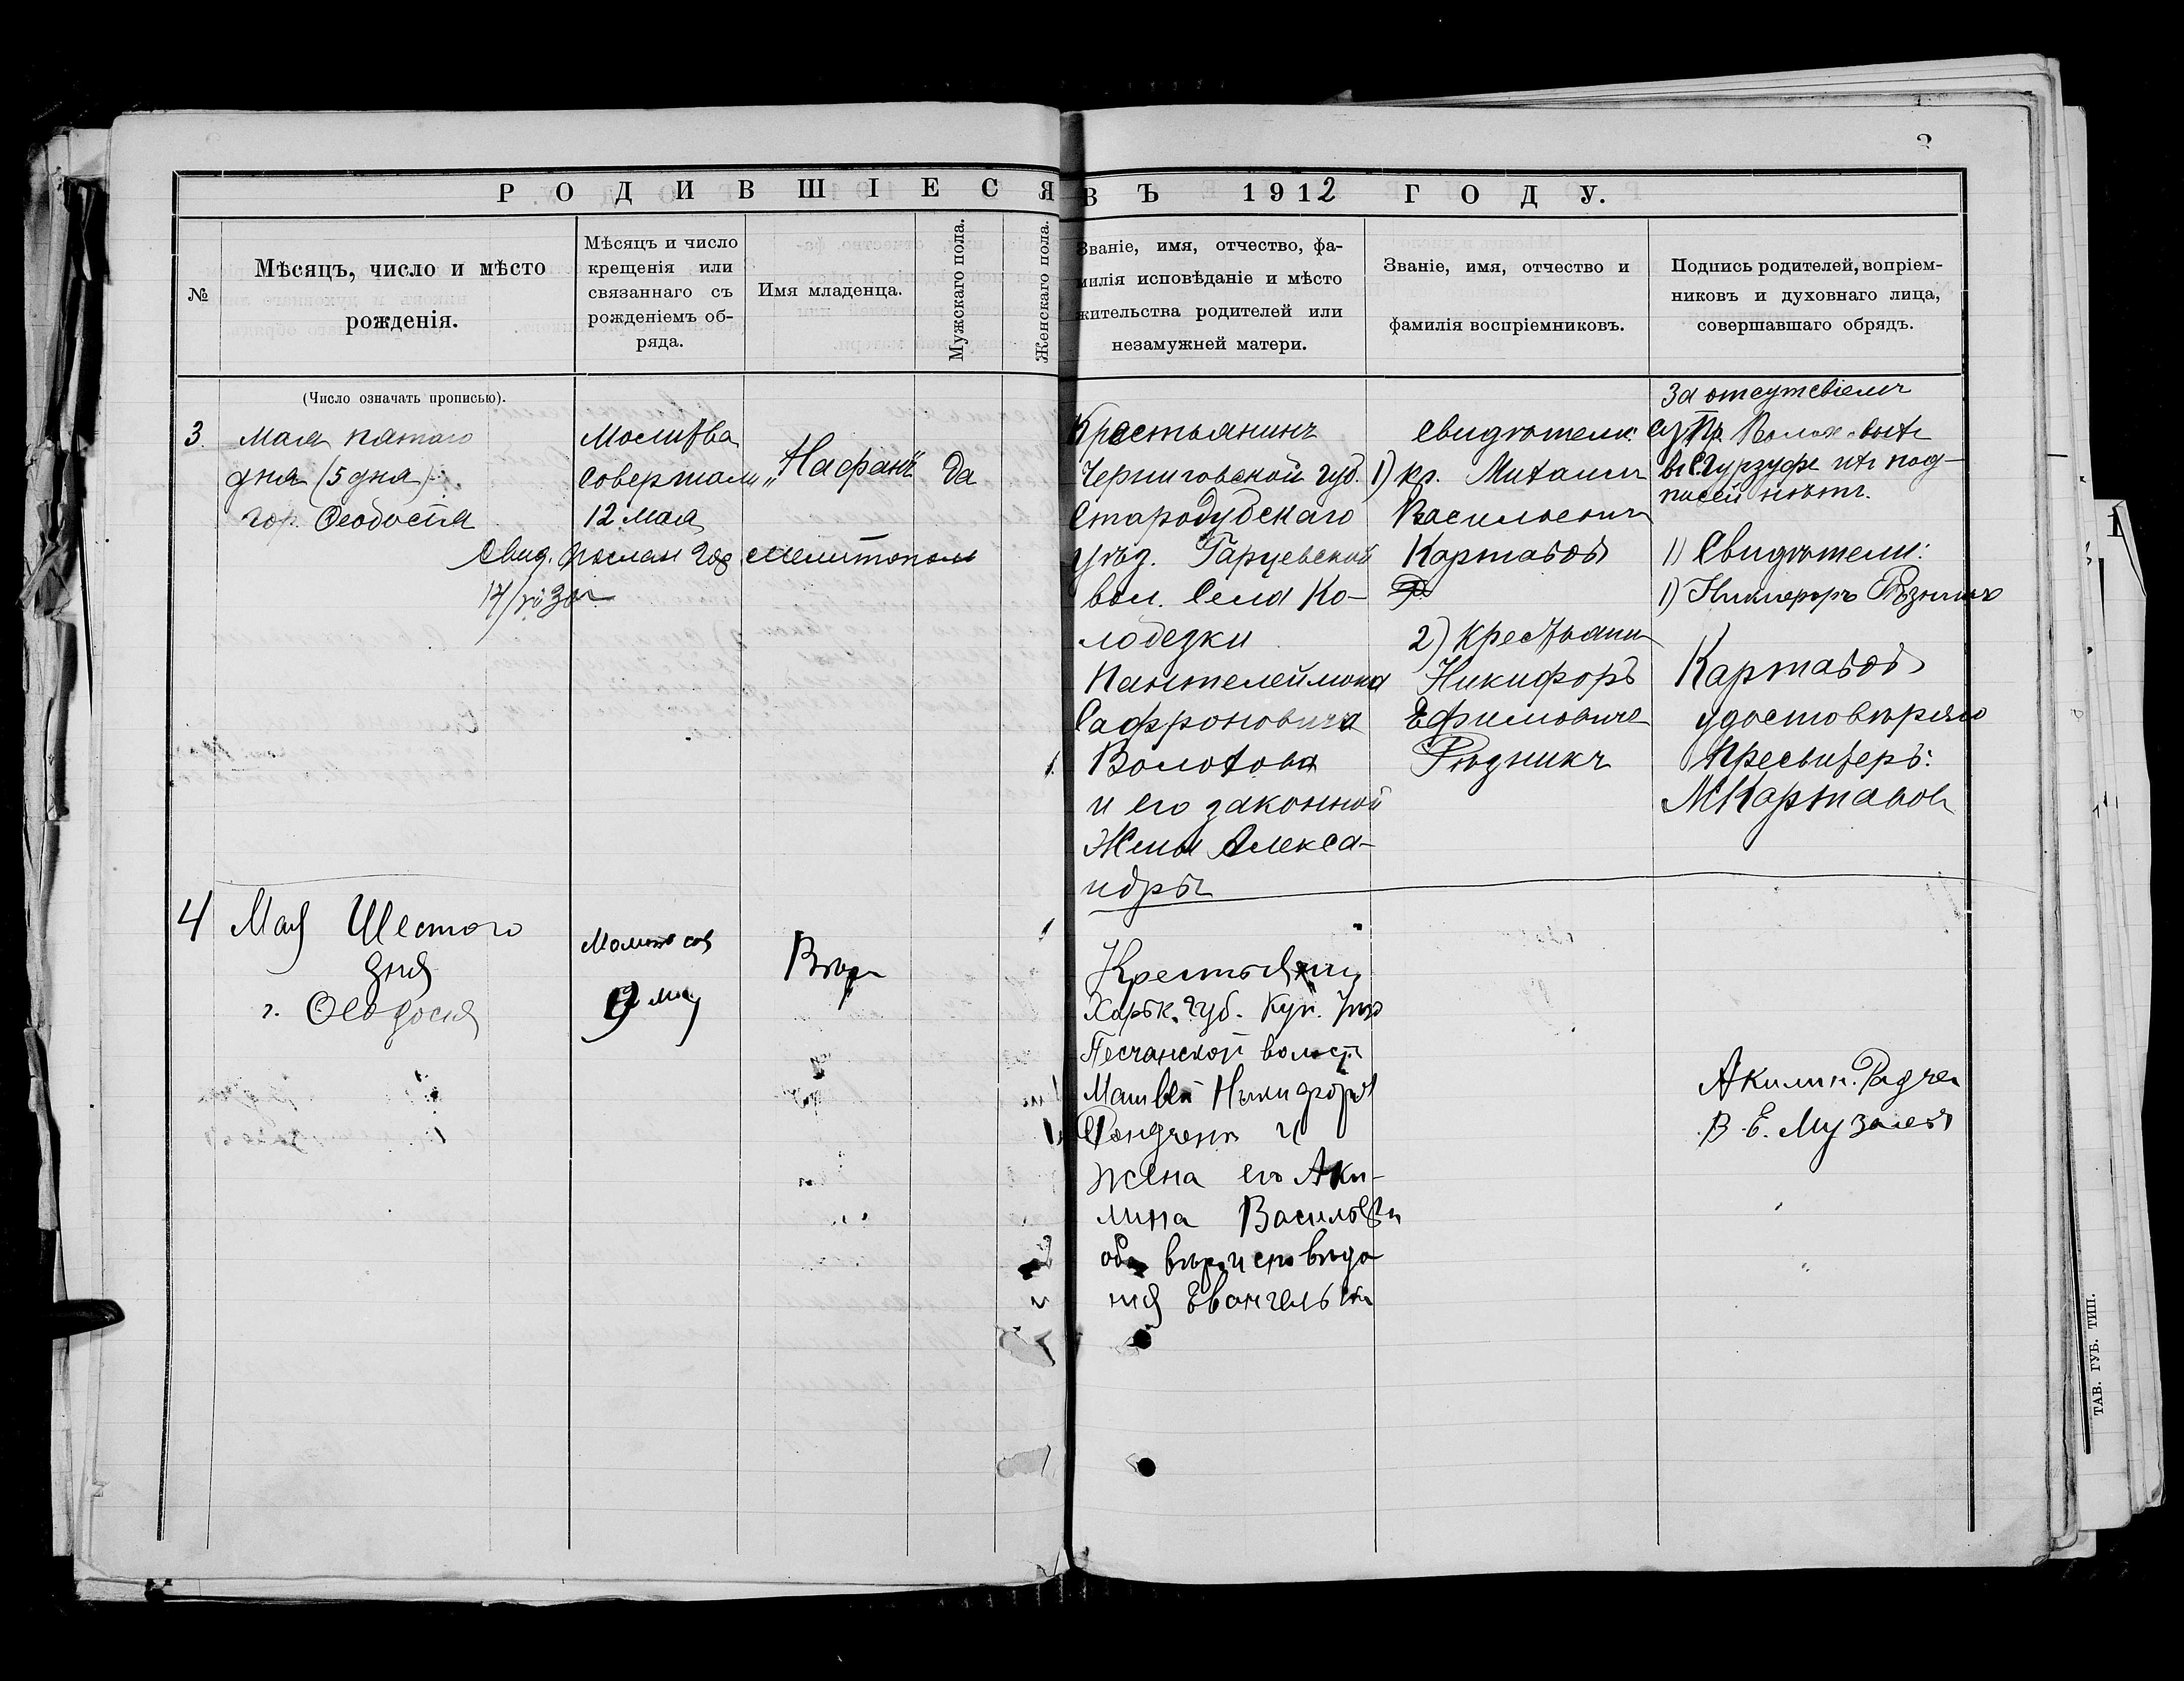 РОДИВШІЕСЯ ВЪ 1912 ГОДУ.
№
Мѣсяцъ, число и мѣсто
рожденія.
Мѣсяцъ и число
крещенія или
связаннаго съ
рожденіемъ об-
ряда.
Имя младенца.
Мужскаго пола.
Женскаго пола.
Званіе, имя, отчество, фа-
милія исповѣданіе и мѣсто
жительства родителей или
незамужней матери.
Званіе, имя, отчество и
фамилія воспріемниковъ.
Подпись родителей, вопріем-
никовъ и духовнаго лица,
совершавшаго обрядъ.
(Число означать прописью).
3.
Мая пятаго
дня (5 дня)
гор. Ѳеодосія
Молитва
совершали
12 мая
Свид. послан Мелитополь
„Нафанъ
да
Крестьянинъ
Черниговской губ.
Стародубскаго
уѣзд. Гарцевской
вол. Села Ко-
лодезки
Пантелеймона
Сафроновича
Волотова
и его законной
Жены Алекса-
ндры
Свидѣтели:
1) кр. Михаилъ
Васильевич
Картавовъ
2) Крестьянин
Никифоръ
Ефимовиче
Рѣзникъ
За отсутсвіемъ
въ Гурзуфе ихъ под-
писей нѣтъ.
1) Свидѣтели:
1) Никифоръ Рѣзникъ
Картавовъ
удостовѣряю
Пресвитеръ:
М Картавов
4
Мая Шестого
дня
г. Ѳеодосія
Молит сов
9 мая
Вѣра
Крестьянин
Харьк. губ. Куп. уѣз
Песчанской волост
Матвей Никифоров
Радченк и
жена его Аки-
лина Васильевн
оба вѣроисповѣда
нія Евангельск
Акилин. Радчен
В. Е. Музалев
ТАВ. ГУБ. ТИП.